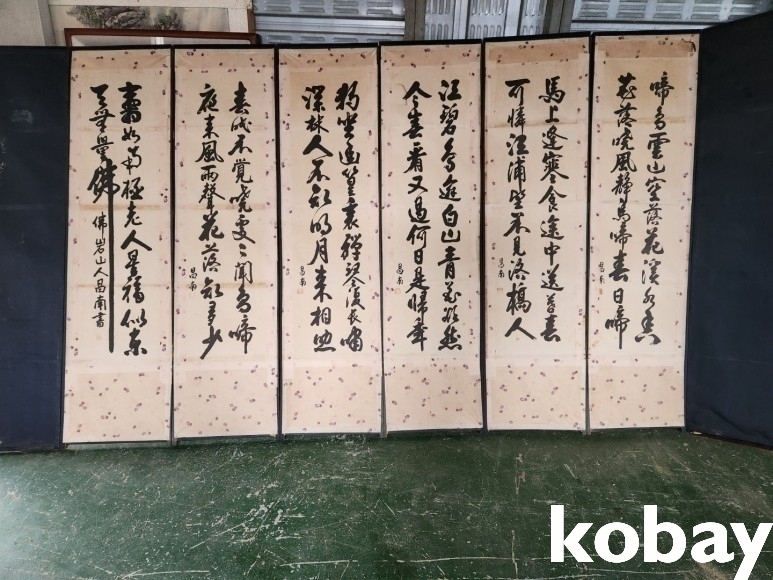 啼鳥雲山空落花溪水香
花落曉風靜鳥啼春日啼
昌南
馬上逢寒食途中送暮春
可憐江浦望不見洛橋人
昌南
江碧鳥逾白山靑花欲然
今春看又過何日是歸年
昌南
獨坐幽篁裏彈琴復長嘯
深林人不知明月來相照
昌南
春眠不覺曉處々聞鳥啼
夜來風雨聲花落知多少
昌南
壽如南極老人星福似東
天無量佛
佛岩山人昌南書
kobay